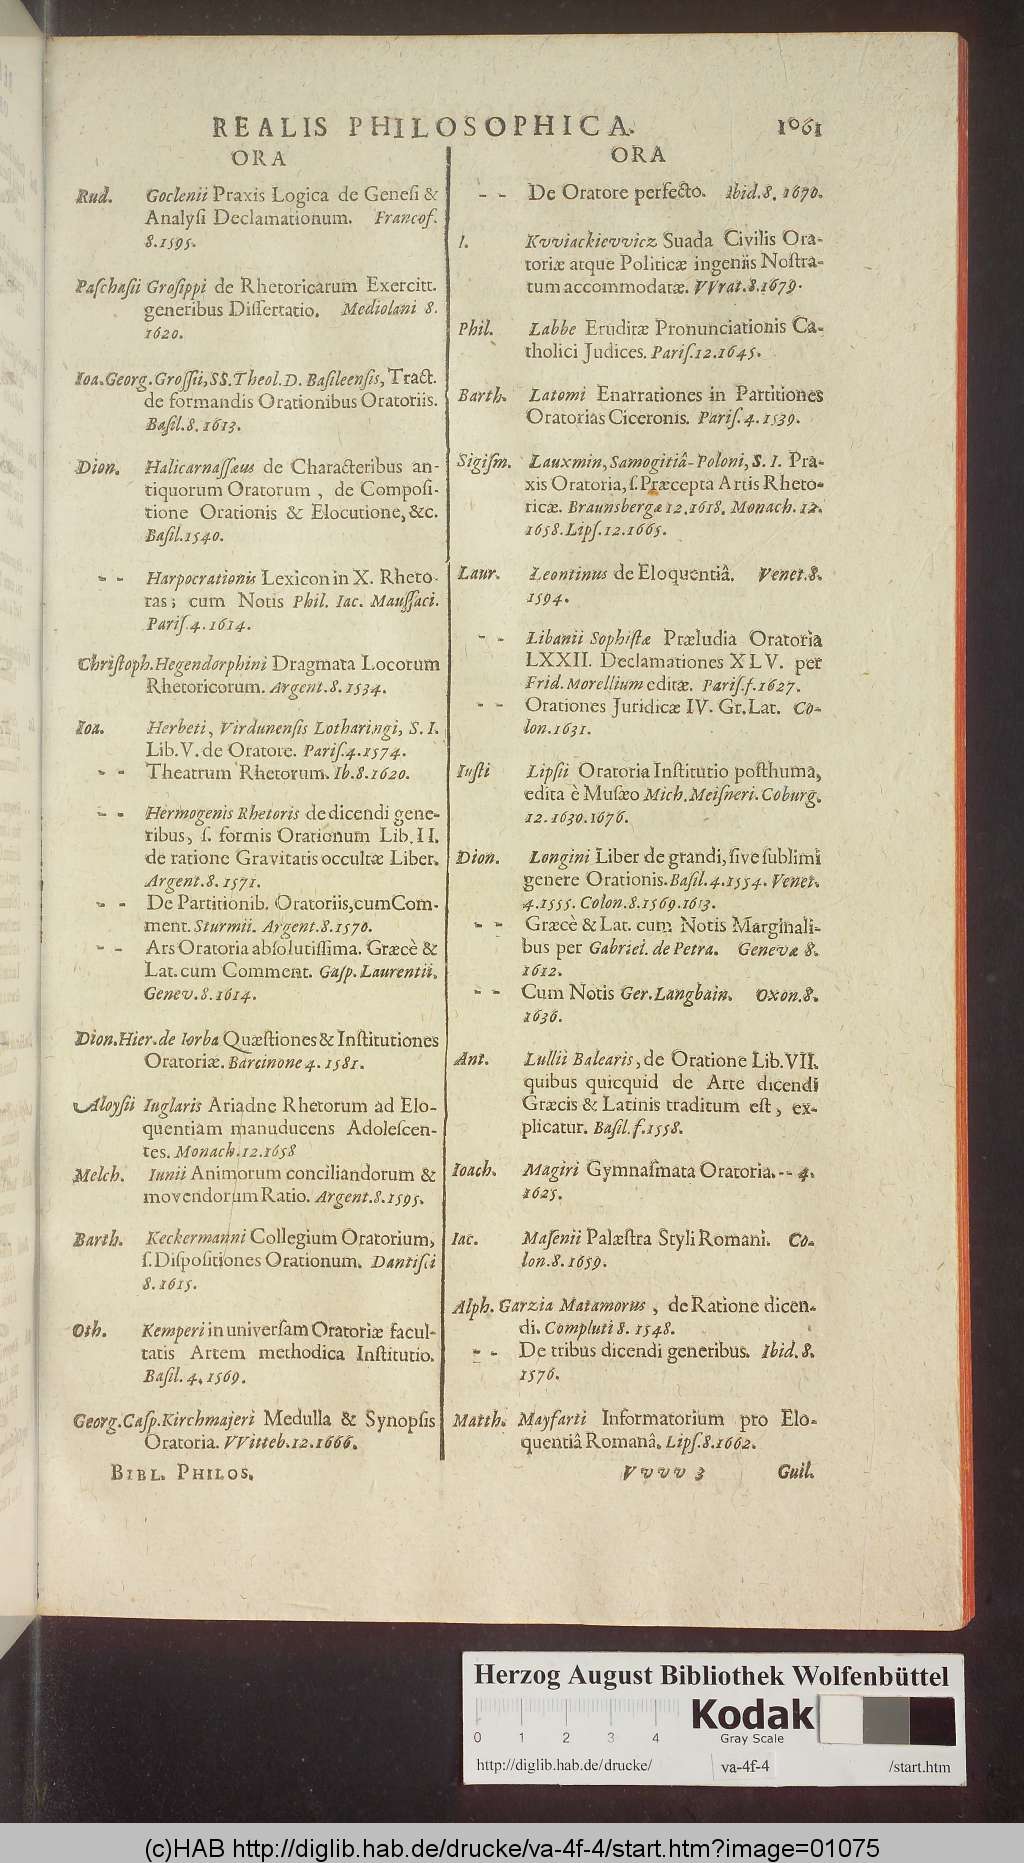 REALIS PHILOSOPHICA. 1061
ORA
Rud. Goclenii Praxis Logica de Genesi &
Analysi Declamationum. Francof.
8. 1595.
Paschasii Grosippi de Rhetoricarum Exercitt.
generibus Dissertatio. Mediolani 8.
1620.
Ioa. Georg. Grossii, SS. Theol. D. Basileensis, Tract.
de formandis Orationibus Oratoriis.
Basil. 8. 1613.
Dion. Halicarnassæus de Characteribus an-
tiquorum Oratorum, de Composi-
tione Orationis & Elocutione, &c.
Basil. 1540.
- - Harpocrationis Lexicon in X. Rheto-
ras; cum Notis Phil. Iac. Maussaci.
Paris. 4. 1614.
Christoph. Hegendorphini Dragmata Locorum
Rhetoricorum. Argent. 8. 1534.
Ioa. Herbeti, Virdunensis Lotharingi, S. I.
Lib. V. de Oratore. Paris. 4. 1574.
- - Theatrum Rhetorum. Ib. 8. 1620.
- - Hermogenis Rhetoris de dicendi gene-
ribus, s. formis Orationum Lib. II.
de ratione Gravitatis occultæ Liber.
Argent. 8. 1571.
- - De Partitionib. Oratoriis, cum Com-
ment. Sturmii. Argent. 8. 1570.
- - Ars Oratoria absolutissima. Græcè &
Lat. cum Comment. Gasp. Laurentii.
Genev. 8. 1614.
Dion. Hier. de Iorba Quæstiones & Institutiones
Oratoriæ. Barcinone 4. 1581.
Aloysii Iuglaris Ariadne Rhetorum ad Elo-
quentiam manuducens Adolescen-
tes. Monach. 12. 1658
Melch. Iunii Animorum conciliandorum &
movendorum Ratio. Argent. 8. 1595.
Barth. Keckermanni Collegium Oratorium,
s. Dispositiones Orationum. Dantisci
8. 1615.
Oth. Kemperi in universam Oratoriæ facul-
tatis Artem methodica Institutio.
Basil. 4. 1569.
Georg. Casp. Kirchmajeri Medulla & Synopsis
Oratoria. VVitteb. 12. 1666.
BIBL. PHILOS.
ORA
- - De Oratore perfecto. Ibid. 8. 1670.
I. Kvviackievvicz Suada Civilis Ora-
toriæ atque Politicæ ingeniis Nostra-
tum accommodatæ. VVrat. 8. 1679.
Phil. Labbe Eruditæ Pronunciationis Ca-
tholici Judices. Paris. 12. 1645.
Barth. Latomi Enarrationes in Partitiones
Oratorias Ciceronis. Paris. 4. 1539.
Sigism. Lauxmin, Samogitiâ-Poloni, S. I. Pra-
xis Oratoria, s. Præcepta Artis Rheto-
ricæ. Braunsbergæ 12. 1618. Monach. 12.
1658. Lips. 12. 1665.
Laur. Leontinus de Eloquentiâ. Venet. 8.
1594.
- - Libanii Sophistæ Præludia Oratoria
LXXII. Declamationes XLV. per
Frid. Morellium editæ. Paris. f. 1627.
- - Orationes Juridicæ IV. Gr. Lat. Co-
lon. 1631.
Iusti Lipsii Oratoria Institutio posthuma,
edita è Musæo Mich. Meisneri. Coburg.
12. 1630. 1676.
Dion. Longini Liber de grandi, sive sublimi
genere Orationis. Basil. 4. 1554. Venet.
4. 1555. Colon. 8. 1569. 1613.
- - Græcè & Lat. cum Notis Marginali-
bus per Gabriel. de Petra. Genevæ 8.
1612.
- - Cum Notis Ger. Langbain. Oxon. 8.
1636.
Ant. Lullii Balearis, de Oratione Lib. VII.
quibus quicquid de Arte dicendi
Græcis & Latinis traditum est, ex-
plicatur. Basil. f. 1558.
Ioach. Magiri Gymnasmata Oratoria. - - 4.
1625.
Iac. Masenii Palæstra Styli Romani. Co-
lon. 8. 1659.
Alph. Garzia Matamorus, de Ratione dicen-
di. Compluti 8. 1548.
- - De tribus dicendi generibus. Ibid. 8.
1576.
Matth. Mayfarti Informatorium pro Elo-
quentiâ Romanâ. Lips. 8. 1662.
Vvvv 3 Guil.
Herzog August Bibliothek Wolfenbüttel
0 1 2 3 4
Kodak
Gray Scale
http://diglib.hab.de/drucke/ va-4f-4 /start.htm
(c)HAB http://diglib.hab.de/drucke/va-4f-4/start.htm?image=01075